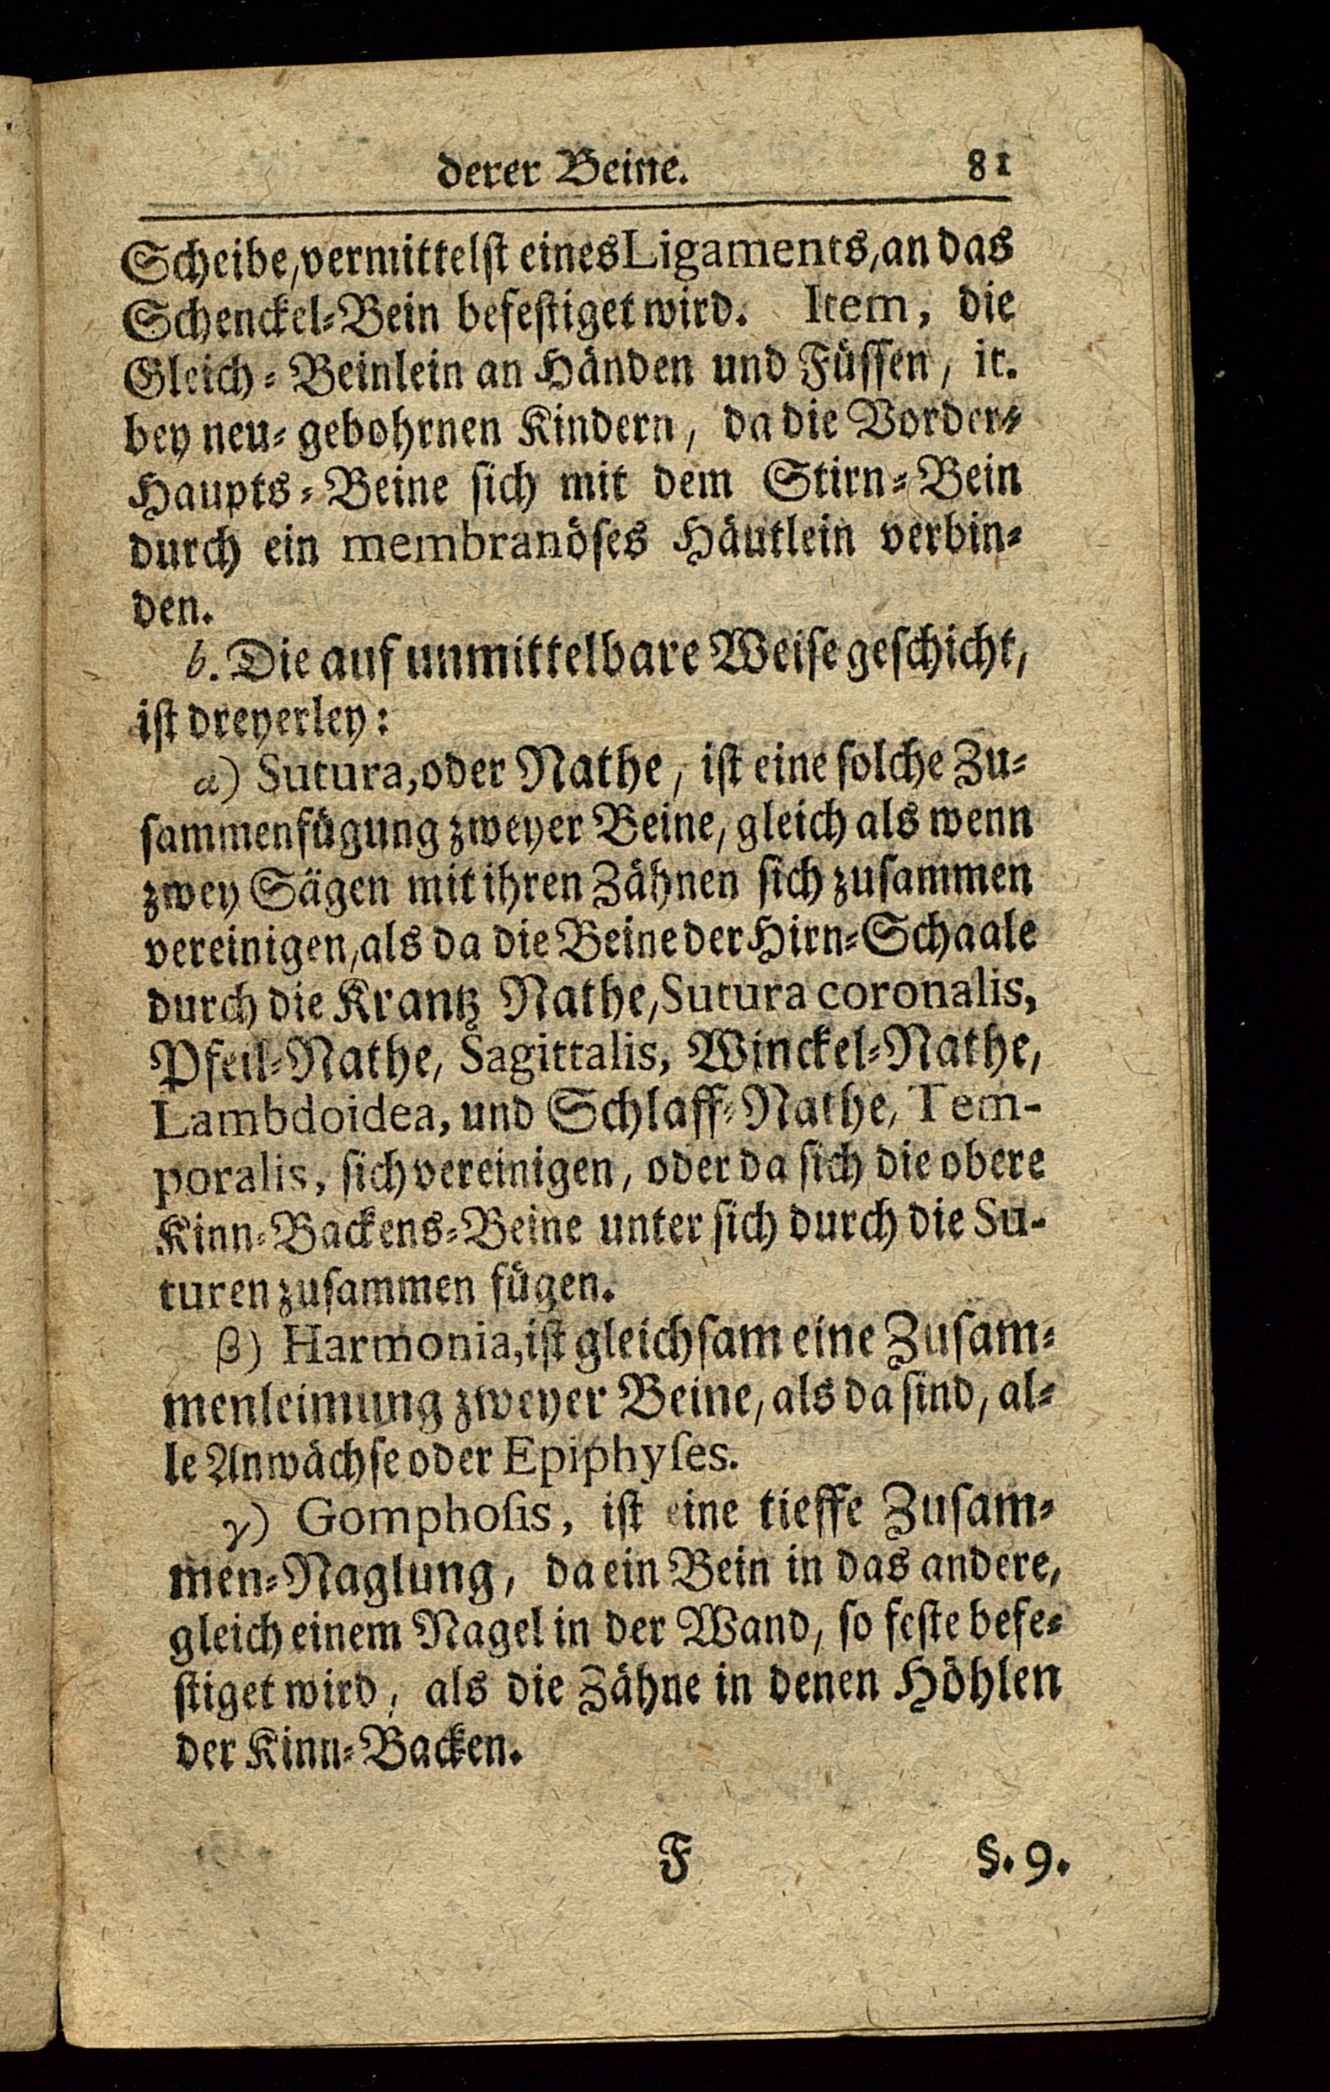 derer Beine. 81
Scheibe, vermittelst eines Ligaments, an das
Schenckel-Bein befestiget wird. Item, die
Gleich-Beinlein an Händen und Füssen, it.
bey neu-gebohrnen Kindern, da die Vorder-
Haupts-Beine sich mit dem Stirn-Bein
durch ein membranöses Häutlein verbin-
den.
b. Die auf unmittelbare Weise geschicht,
ist dreyerley:
α) Sutura, oder Nathe, ist eine solche Zu-
sammenfügung zweyer Beine, gleich als wenn
zwey Sägen mit ihren Zähnen sich zusammen
vereinigen, als da die Beine der Hirn-Schaale
durch die Krantz Nathe, Sutura coronalis,
Pfeil-Nathe, Sagittalis, Winckel-Nathe,
Lambdoidea, und Schlaff-Nathe, Tem-
poralis, sich vereinigen, oder da sich die obere
Kinn-Backens-Beine unter sich durch die Su-
turen zusammen fügen.
β) Harmonia, ist gleichsam eine Zusam-
menleimung zweyer Beine, als da sind, al-
le Anwächse oder Epiphyses.
γ) Gomphosis, ist eine tieffe Zusam-
men-Naglung, da ein Bein in das andere,
gleich einem Nagel in der Wand, so feste befe-
stiget wird, als die Zähne in denen Höhlen
der Kinn-Backen.
F §. 9.